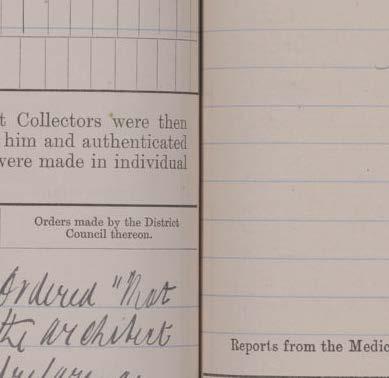 t Collectors were then
him and authenticated
were made in individual
Orders made by the District
Council thereon.
Ordered "That
the architect
Reports from the Medic